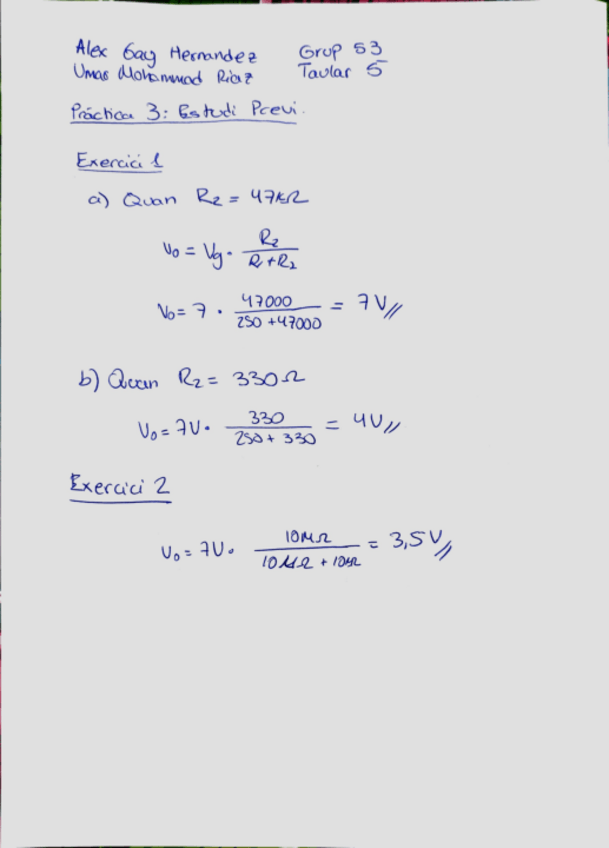 Alex Gay Hernandez Grup 53
Umas Mohammad Riaz Taular 5
Pràctica 3: Estudi Previ.
Exercici 1
a) Quan R₂ = 47kΩ
V₀ = Vg · R₂ / (R + R₂)
V₀ = 7 · 47000 / (250 + 47000) = 7V//
b) Quan R₂ = 330Ω
V₀ = 7V · 330 / (250 + 330) = 4V//
Exercici 2
V₀ = 7V · 10MΩ / (10MΩ + 10MΩ) = 3,5V//